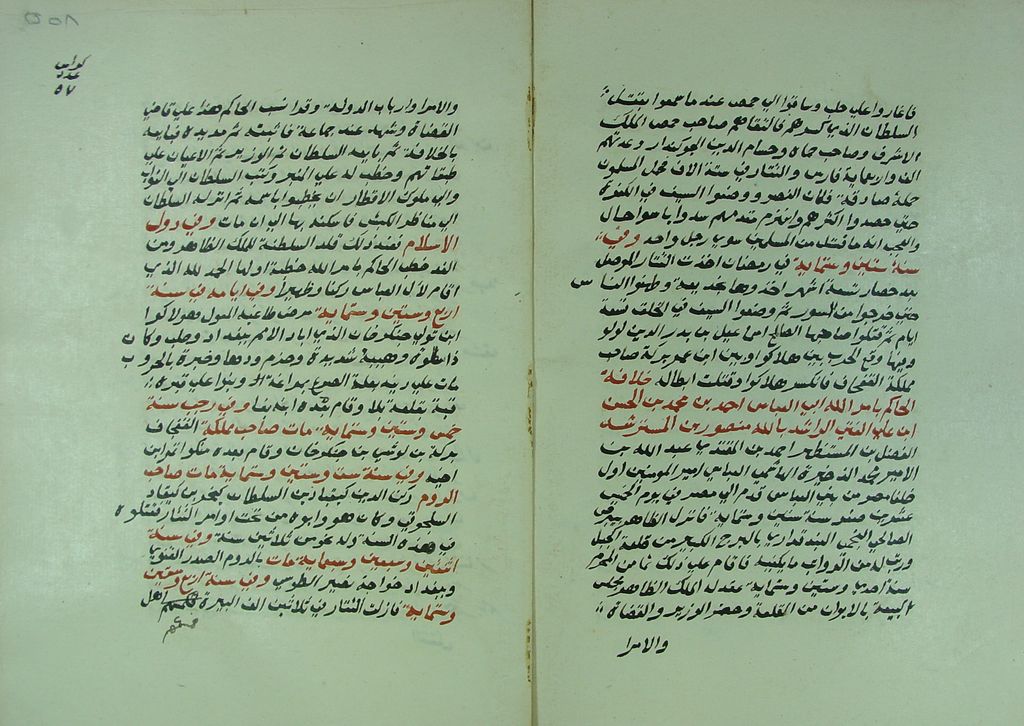 فاغاروا علي حلب وساقوا الي حمص عند ما سمعوا بقتل
السلطان الذي كسرهم فالتقاهم صاحب حمص الملك
الاشرف وصاحب حماه وحسام الدين الجوكندار وعدتهم
الف واربعماية فارس والتتار في ستة الاف فحمل المسلمون
حملة صادقة فكان النصر ووضعوا السيف في الكفرة
حتي حصدوا اكثرهم وانهزم مقدمهم بيدرا باسوا حال
والعجب انه ما قتل من المسلمين سوي رجل واحد وفي
سنة ستين وستماية في رمضان اخذت التتار الموصل
بعد حصار تسعة اشهر اخذوها بخديعة وطمنوا الناس
حتي خرجوا من السور ثم وضعوا السيف في الخلق تسعة
ايام ثم قتلوا صاحبها الصالح اسماعيل بن بدر الدين لولو
وفيها وقع الحرب بين هلاكوا وبين ابن عمه بركة صاحب
مملكة القفجاق فانكسر هلاكوا وقتلت ابطاله خلافة
الحاكم بامر الله ابي العباس احمد بن محمد بن الحسن
ابن علي القبي الراشد بالله منصور بن المسترشد
الفضل بن المستظهر احمد بن المقتدي عبد الله بن
الامير محمد الذخيرة الهاشمي العباسي امير المومنين اول
خلفا مصر من بني العباس قدم الي مصر في يوم الخميس
عشرين صفر سنة ستين وستماية فانزله الظاهر بيبرس
الصالحي النجمي البندقداري بالبرج الكبير من قلعة الجبل
ورتب له من الرواتب ما يكفيه فاقام علي ذلك ثامن المحرم
سنة احدي وستين وستماية عقد له الملك الظاهر مجلس
البيعة بالايوان من القلعة وحضر الوزير والقضاة
والامرا
كراس
عدد
٥٧
والامرا وارباب الدولة وقرا نسب الحاكم هذا علي قاضي
القضاة وشهد عند جماعة فاثبته ثم مد يده فبايعه
بالخلافة ثم بايعه السلطان ثم الوزير ثم الاعيان علي
طبقاتهم وخطب له علي المنبر وكتب السلطان الي النواب
والي ملوك الاقطار ان يخطبوا باسمه ثم انزله السلطان
الي مناظر الكبش فاسكنه بها الي ان مات وفي دول
الاسلام فعند ذلك قلد السلطنة للملك الظاهر ومن
الغد خطب الحاكم بامر الله خطبة اولها الحمد لله الذي
اقام لال العباس ركنا وظهيرا وفي ايامه في سنة
اربع وستين وستماية مرض طاغية المغول هولاكوا
ابن تولي جنكزخان الذي اباد الامم ببغداد وحلب وكان
ذا سطوة وهيبة شديدة وحزم ودها وخبرة بالحروب
مات علي دينه بعلة الصرع بمراغة وبنوا علي قبره
قبة بقلعة تلا وقام بعده ابنه ابغا وفي رجب سنة
خمس وستين وستماية مات صاحب مملكة القفجاق
بركة بن توشي بن جنكزخان وقام بعده منكوتمر ابن
اخيه وفي سنة ست وستين وستماية مات صاحب
الروم ركن الدين كيقباد بن السلطان كيخسرو بن كيقباد
السلجوقي وكان هو وابوه من تحت اوامر التتار فقتلوه
في هذه السنة وله نحو من ثلاثين سنة وفي سنة
اثنتين وسبعين وستماية مات بالروم الصدر القنوي
وببغداد خواجه نصير الطوسي وفي سنة اربع وسبعين
وستماية نازلت التتار في ثلاثين الف البيرة فكبسهم اهل